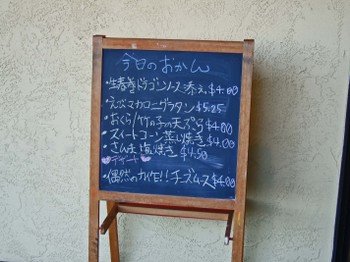 今日のおかん
・生春巻ドラゴンソース添え $4.00
・えびマカロニグラタン $5.25
・おくら/竹の子の天ぷら $4.00
・スイートコーン蒸し焼き $4.00
・さんま塩焼き $4.50
♥デザート♥
・偶然のカイセ!!チーズムース $4.00